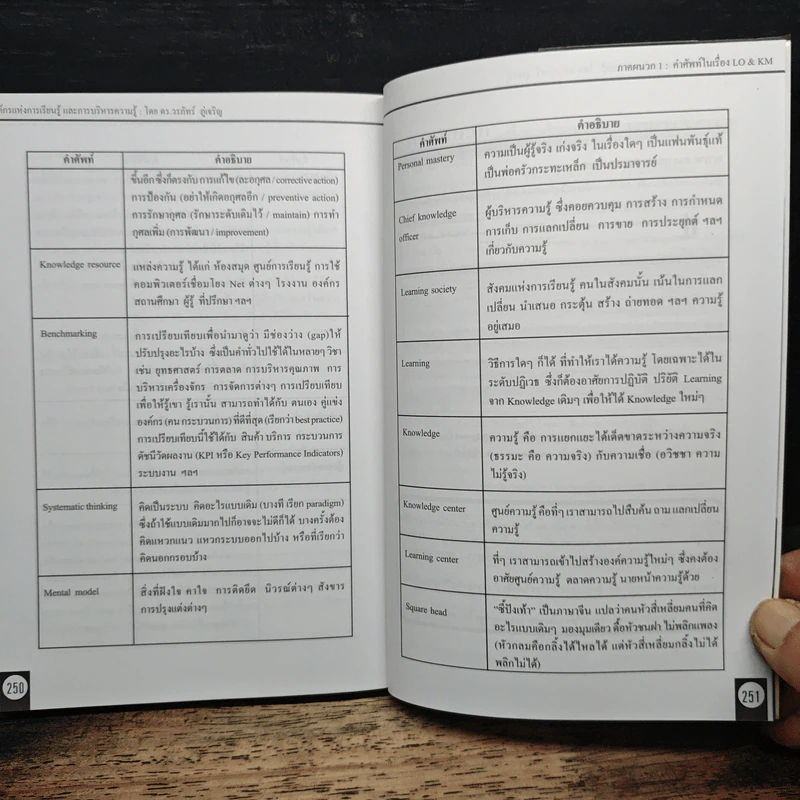 งค์กรแห่งการเรียนรู้ และการบริหารความรู้ : โดย ดร.วรภัทร์ ภู่เจริญ
คำศัพท์
คำอธิบาย
ขึ้นอีก ซึ่งก็ตรงกับ การแก้ไข (ละอกุศล / corrective action)
การป้องกัน (อย่าให้เกิดอกุศลอีก / preventive action)
การรักษากุศล (รักษาระดับเดิมไว้ / maintain) การทำ
กุศลเพิ่ม (การพัฒนา / improvement)
Knowledge resource
แหล่งความรู้ ได้แก่ ห้องสมุด ศูนย์การเรียนรู้ การใช้
คอมพิวเตอร์เชื่อมโยง Net ต่างๆ โรงงาน องค์กร
สถานศึกษา ผู้รู้ ที่ปรึกษา ฯลฯ
Benchmarking
การเปรียบเทียบเพื่อนำมาดูว่า มีช่องว่าง (gap)ให้
ปรับปรุงอะไรบ้าง ซึ่งเป็นคำทั่วไปใช้ได้ในหลายๆ วิชา
เช่น ยุทธศาสตร์ การตลาด การบริหารคุณภาพ การ
บริหารเครื่องจักร การจัดการต่างๆ การเปรียบเทียบ
เพื่อให้รู้เขา รู้เรานั้น สามารถทำได้กับ ตนเอง คู่แข่ง
องค์กร (คน กระบวนการ) ที่ดีที่สุด (เรียกว่า best practice)
การเปรียบเทียบนี้ใช้ได้กับ สินค้า บริการ กระบวนการ
ดัชนีวัดผลงาน (KPI หรือ Key Performance Indicators)
ระบบงาน ฯลฯ
Systematic thinking
คิดเป็นระบบ คิดอะไรแบบเดิม (บางที เรียก paradigm)
ซึ่งถ้าใช้แบบเดิมมากไปก็อาจจะไม่ดีก็ได้ บางครั้งต้อง
คิดแหวกแนว แหวกระบบออกไปบ้าง หรือที่เรียกว่า
คิดนอกกรอบบ้าง
Mental model
สิ่งที่ฝังใจ คาใจ การติดยึด นิวรณ์ต่างๆ สังขาร
การปรุงแต่งต่างๆ
250
ภาคผนวก 1 : คำศัพท์ในเรื่อง LO & KM
คำศัพท์
คำอธิบาย
Personal mastery
ความเป็นผู้รู้จริง เก่งจริง ในเรื่องใดๆ เป็นแฟนพันธุ์แท้
เป็นพ่อครัวกระทะเหล็ก เป็นปรมาจารย์
Chief knowledge
officer
ผู้บริหารความรู้ ซึ่งคอยควบคุม การสร้าง การกำหนด
การเก็บ การแลกเปลี่ยน การขาย การประยุกต์ ฯลฯ
เกี่ยวกับความรู้
Learning society
สังคมแห่งการเรียนรู้ คนในสังคมนั้น เน้นในการแลก
เปลี่ยน นำเสนอ กระตุ้น สร้าง ถ่ายทอด ฯลฯ ความรู้
อยู่เสมอ
Learning
วิธีการใดๆ ก็ได้ ที่ทำให้เราได้ความรู้ โดยเฉพาะได้ใน
ระดับปฏิเวธ ซึ่งก็ต้องอาศัยการปฏิบัติ ปริยัติ Learning
จาก Knowledge เดิมๆ เพื่อให้ได้ Knowledge ใหม่ๆ
Knowledge
ความรู้ คือ การแยกแยะได้เด็ดขาดระหว่างความจริง
(ธรรมะ คือ ความจริง) กับความเชื่อ (อวิชชา ความ
ไม่รู้จริง)
Knowledge center
ศูนย์ความรู้ คือที่ๆ เราสามารถไปสืบค้น ถาม แลกเปลี่ยน
ความรู้
Learning center
ที่ๆ เราสามารถเข้าไปสร้างองค์ความรู้ใหม่ๆ ซึ่งคงต้อง
อาศัยศูนย์ความรู้ ตลาดความรู้ นายหน้าความรู้ด้วย
Square head
“ซี้ปังเท้า” เป็นภาษาจีน แปลว่าคนหัวสี่เหลี่ยมคนที่คิด
อะไรแบบเดิมๆ มองมุมเดียว ดื้อหัวชนฝา ไม่พลิกแพลง
(หัวกลมคือกลิ้งได้ไหลได้ แต่หัวสี่เหลี่ยมกลิ้งไม่ได้
พลิกไม่ได้)
251